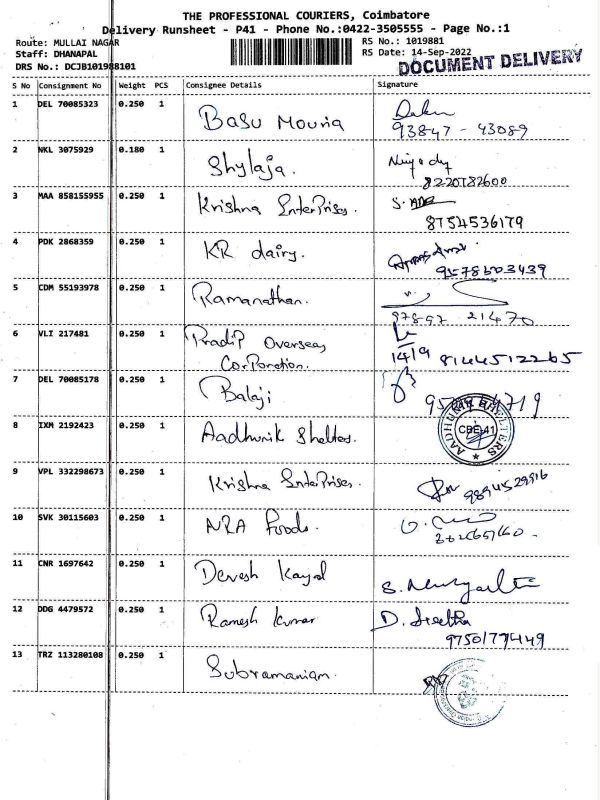 THE PROFESSIONAL COURIERS, Coimbatore
Delivery Runsheet - P41 - Phone No.:0422-3505555 - Page No.:1
Route: MULLAI NAGAR
Staff: DHANAPAL
DRS No.: DCJB101988101
RS No.: 1019881
RS Date: 14-Sep-2022
DOCUMENT DELIVERY
S No Consignment No Weight PCS Consignee Details Signature
1 DEL 70085323 0.250 1 Basu Mouria
93847 - 43089
2 NKL 3075929 0.180 1 Shylaja.
8220782600
3 MAA 858155955 0.250 1 Krishna Enterprises.
8754536179
4 PDK 2868359 0.250 1 KR dairy.
9578603439
5 CDM 55193978 0.250 1 Ramanathan.
97897 21470
6 VLI 217481 0.250 1 Pradip Overseas
Corporation.
14/9 8144512265
7 DEL 70085178 0.250 1 Balaji
8 IXM 2192423 0.250 1 Aadhunik Shelters.
AADHUNIK SHELTERS
CBE-41
9 VPL 332298673 0.250 1 Krishna Enterprises.
10 SVK 30115603 0.250 1 NRA Foods.
11 CNR 1697642 0.250 1 Devesh Kayal
12 DDG 4479572 0.250 1 Ramesh Kumar
D.
13 TRZ 113280108 0.250 1 Subramanian.